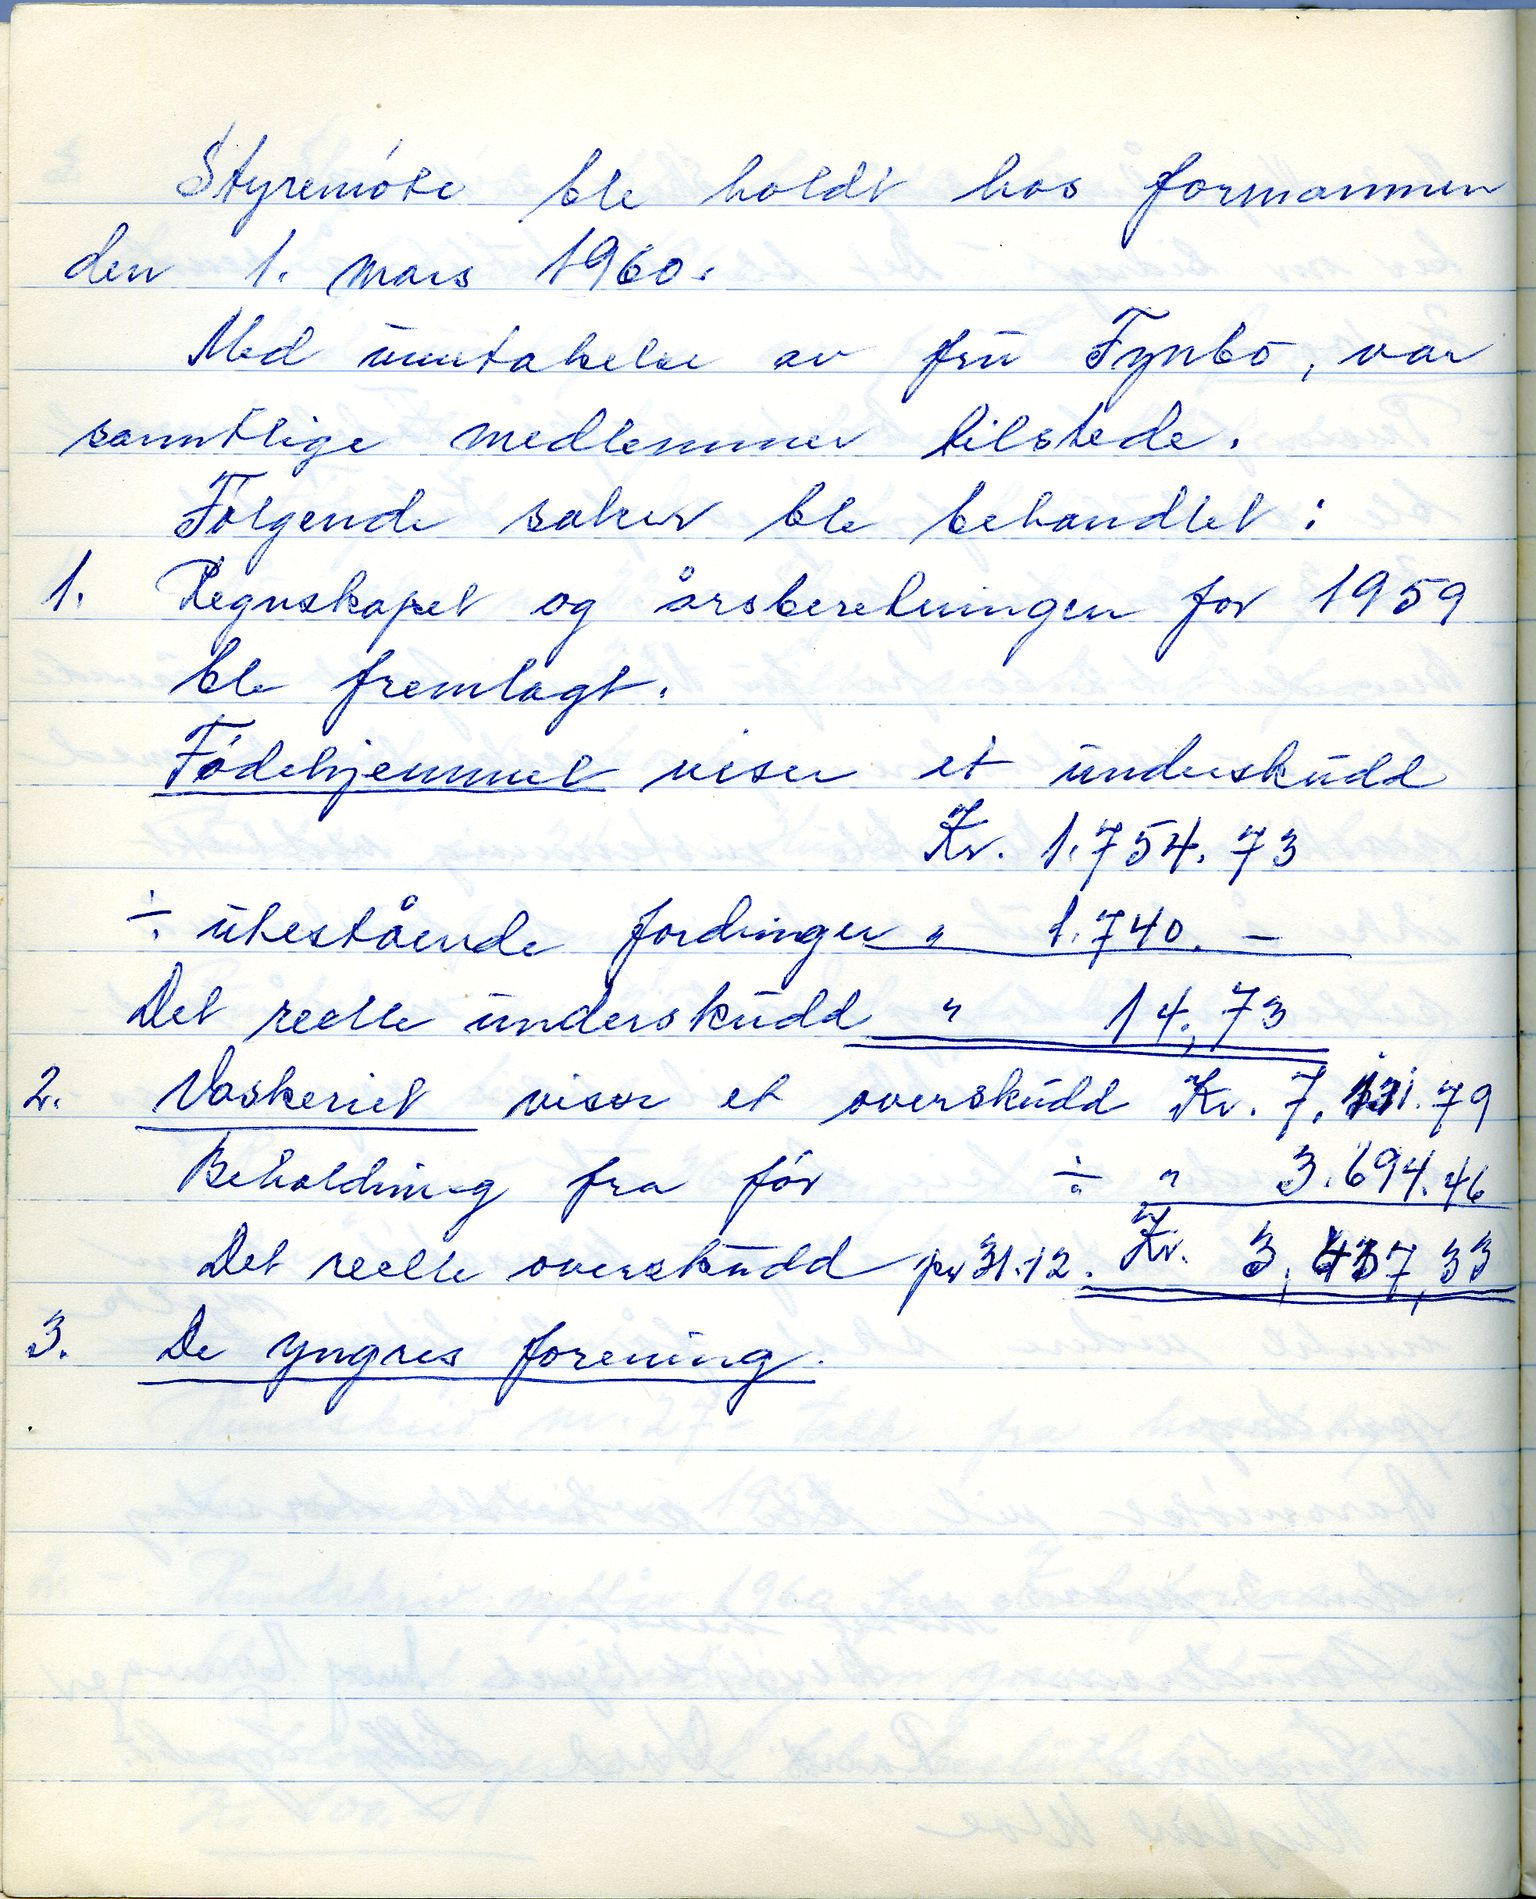 Styremöte ble holdt hos formannen
den 1. mars 1960.
Med unntakelse av fru Fynbo, var
samtlige medlemmer tilstede.
Følgende saker ble behandlet:
1. Regnskapet og årsberetningen for 1959
ble fremlagt.
Födehjemmet viser et underskudd
Kr. 1.754.73
÷ utestående fordringer " 1.740. —
Det reelle underskudd " 14,73
2. Vaskeriet viser et overskudd Kr. 7.131.79
Beholdning fra för ÷ " 3.694.46
Det reelle overskudd pr 31.12. Kr. 3,437,33
3. De yngres forening.